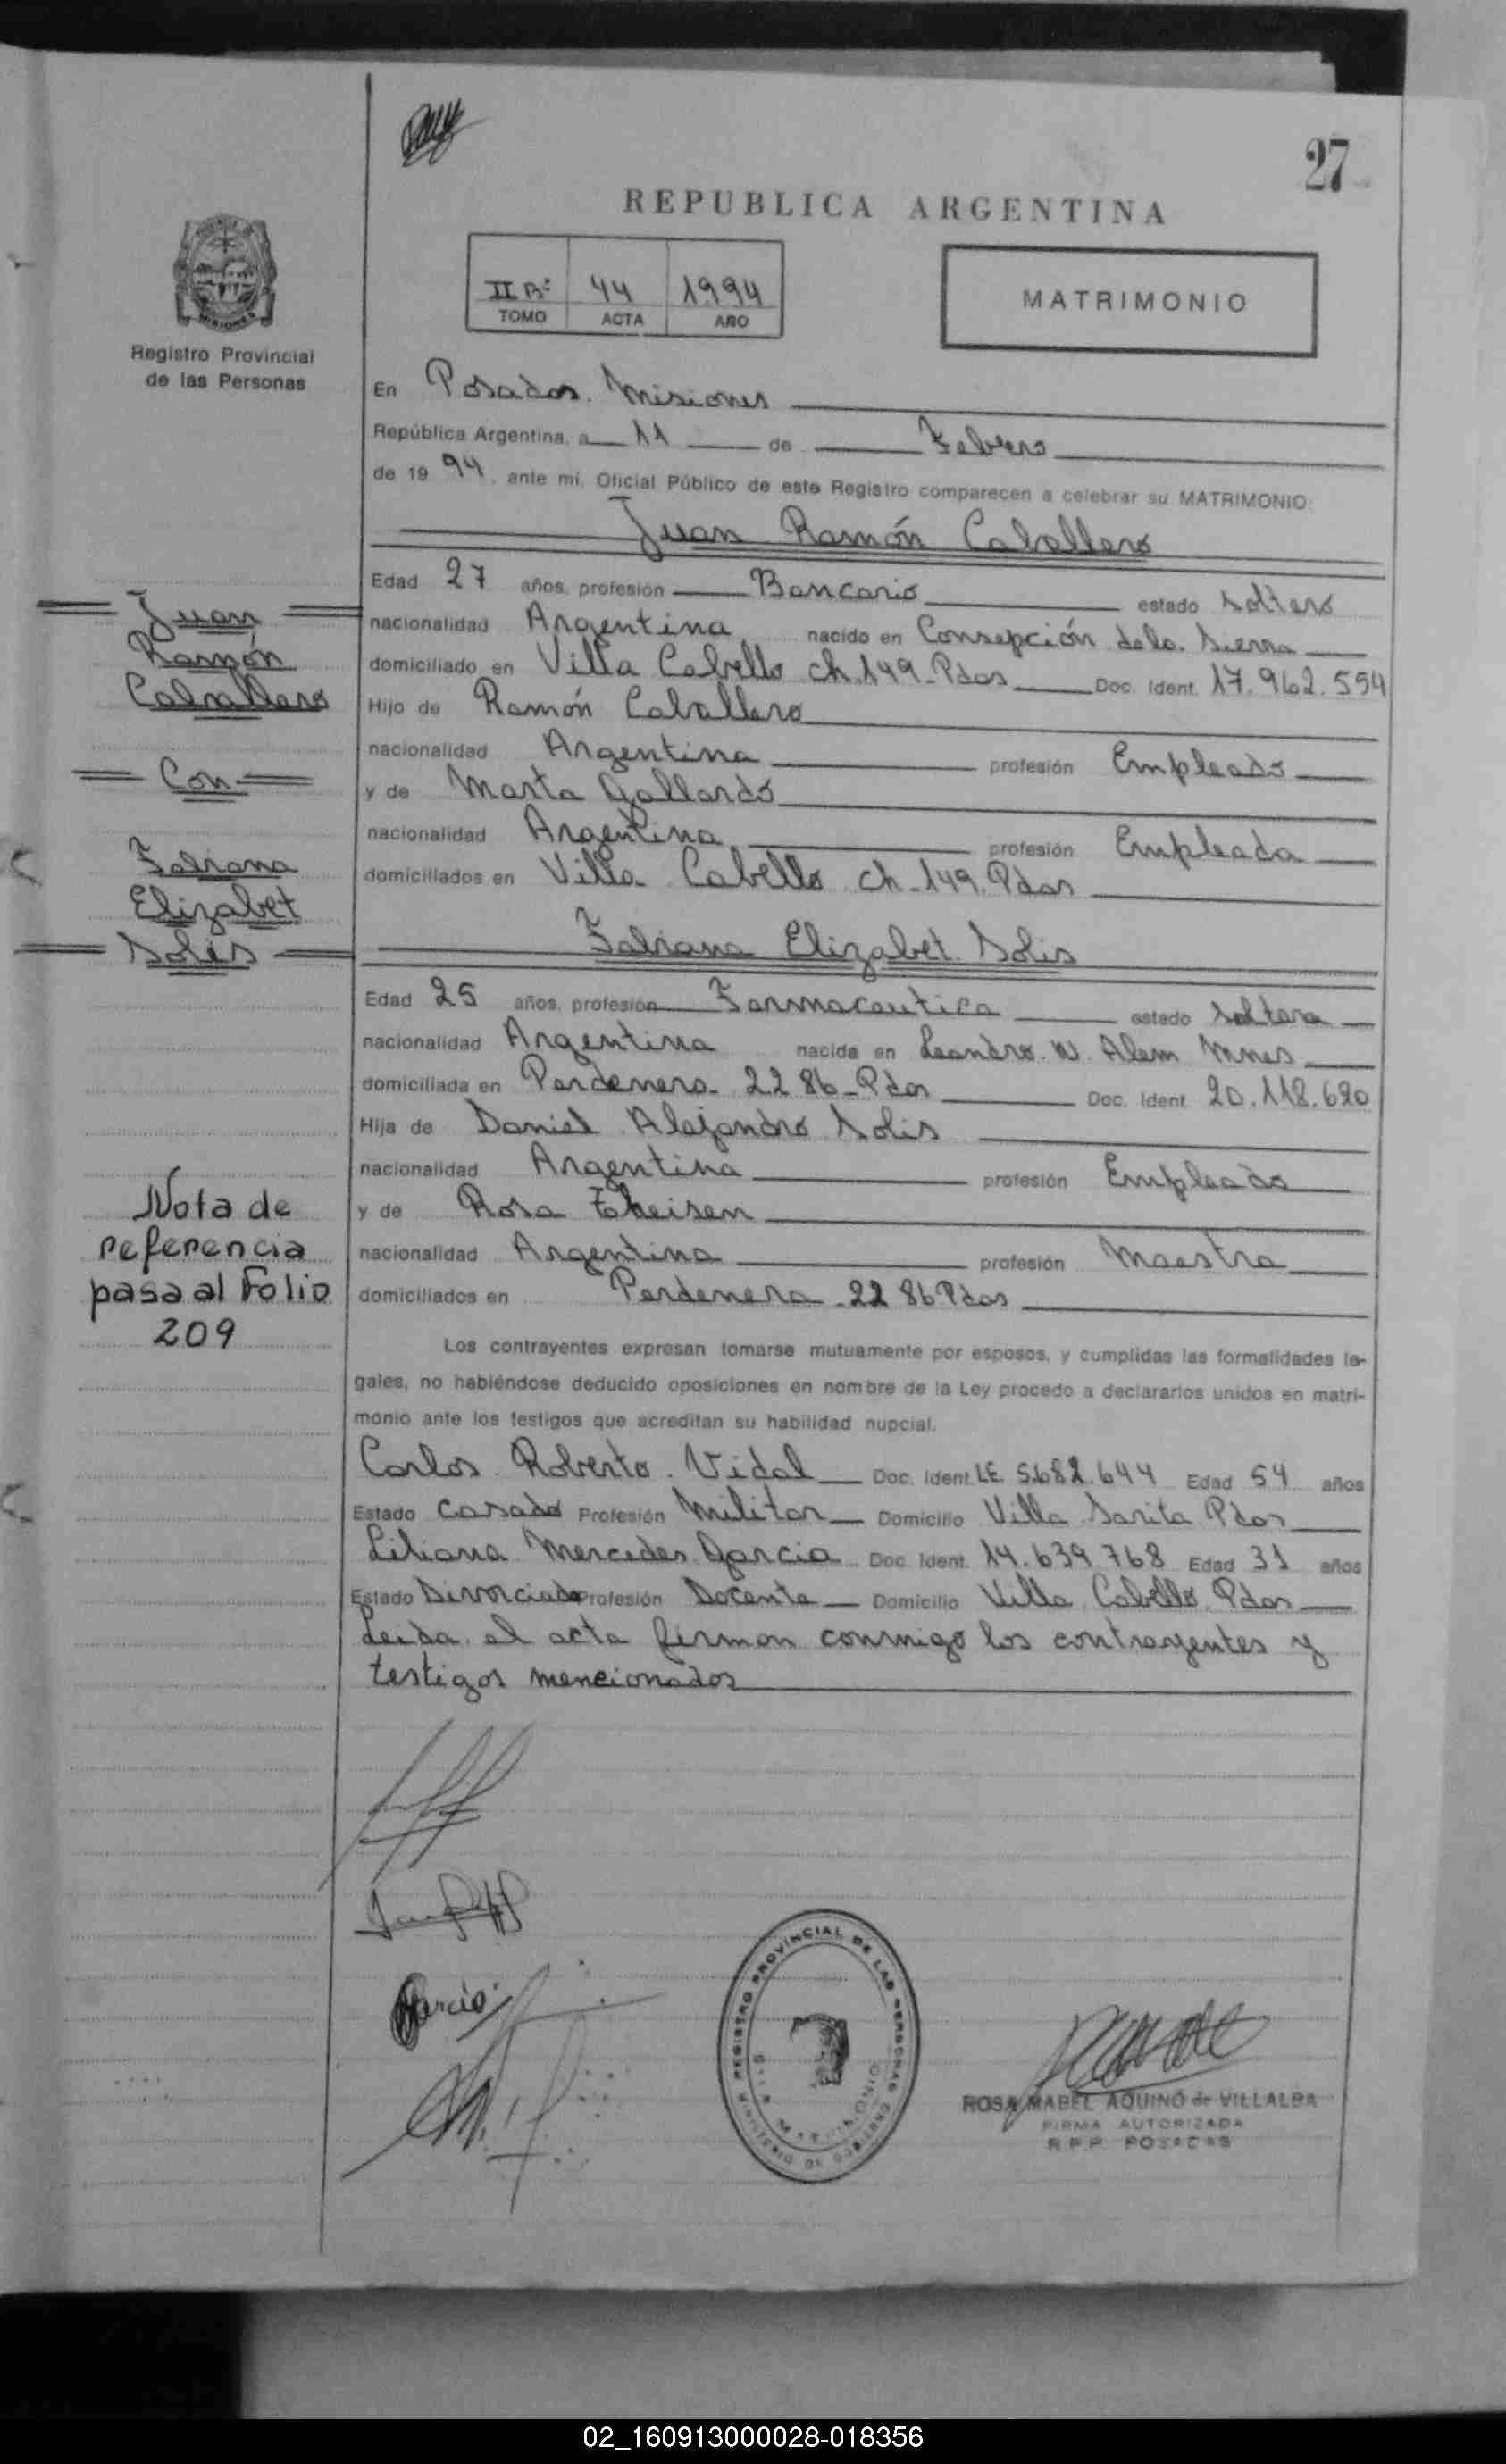 27
REPUBLICA ARGENTINA
II Bº 44 1994
TOMO ACTA AÑO
MATRIMONIO
MISIONES
Registro Provincial
de las Personas
En Posadas. Misiones
República Argentina, a 11 de Febrero
de 1994, ante mi, Oficial Público de este Registro comparecen a celebrar su MATRIMONIO:
Juan Ramón Caballero
Edad 27 años, profesión Bancario estado soltero
nacionalidad Argentina nacido en Consepción dela. Sierra
domiciliado en Villa Cabello ch.149-Pdas Doc. Ident. 17.962.554
Hijo de Ramón Caballero
nacionalidad Argentina profesión Empleado
y de Marta Gallardo
nacionalidad Argentina profesión Empleada
domiciliados en Villa Cabello ch-149. Pdas
Fabiana Elizabet Solis
Edad 25 años, profesión Farmaceutica estado soltera
nacionalidad Argentina nacida en Leandro. N. Alem Mnes
domiciliada en Perdenera- 2286-Pdas Doc. Ident. 20.118.620
Hija de Daniel Alejandro Solis
nacionalidad Argentina profesión Empleado
y de Rosa Theisen
nacionalidad Argentina profesión Maestra
domiciliados en Perdenera-2286 Pdas
Los contrayentes expresan tomarse mutuamente por esposos, y cumplidas las formalidades le-
gales, no habiéndose deducido oposiciones en nombre de la Ley procedo a declararlos unidos en matri-
monio ante los testigos que acreditan su habilidad nupcial.
Carlos Roberto Vidal Doc. Ident. LE 5.682.644 Edad 54 años
Estado Casado Profesión Militar Domicilio Villa Sarita Pdas
Liliana Mercedes Garcia Doc. Ident. 14.639.768 Edad 31 años
Estado Divorciada Profesión Docente Domicilio Villa Cabello Pdas
Leida el acta firman conmigo los contrayentes y
testigos mencionados
Juan
Ramón
Caballero
Con
Fabiana
Elizabet
Solis
Nota de
referencia
pasa al Folio
209
Garcia
REGISTRO PROVINCIAL DE LAS PERSONAS
MINISTERIO DE GOBIERNO
ROSA MABEL AQUINO de VILLALBA
FIRMA AUTORIZADA
R.P.P. POSADAS
02_160913000028-018356